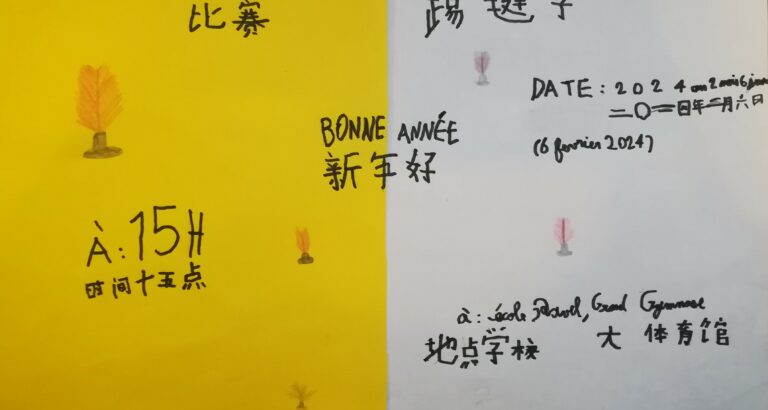 比赛
踢毽子
DATE : 2024 an 2 mois 6 jours
二〇二四年二月六日
(6 fevrier 2024)
BONNE ANNÉE
新年好
À : 15H
时间十五点
à : école Ravel, Grand Gymnase
地点学校 大体育馆